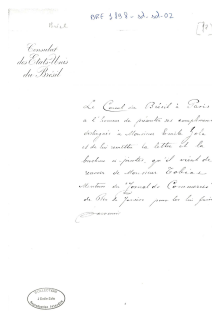 BRE 1898-xx-xx-02
Consulat
des Etats-Unis
du Brésil
Le Consul du Brésil à Paris
a l'honneur de présenter ses compliments
à Monsieur Emile Zola
et de lui remettre la lettre et la
brochure qu'il vient de
recevoir de Monsieur Tobias
Monteiro du "Jornal do Commercio"
de Rio de Janeiro pour les lui faire
parvenir